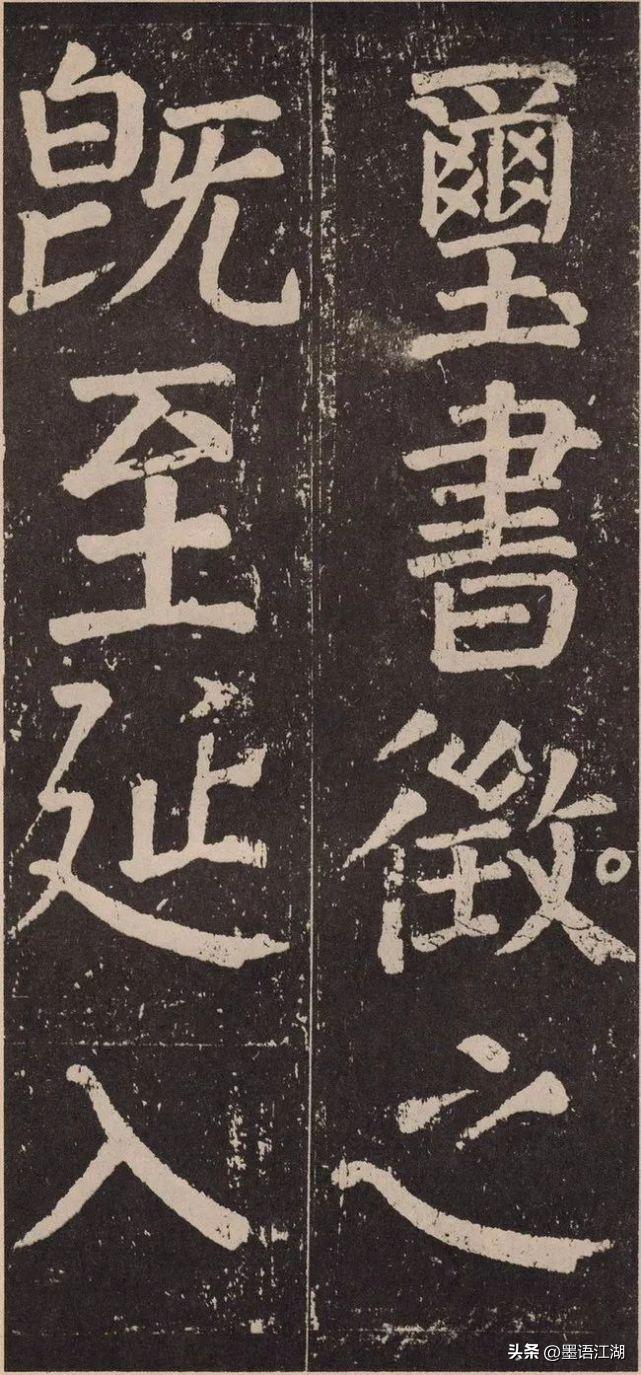 璽書徵之
既至延入
头条 @墨语江湖